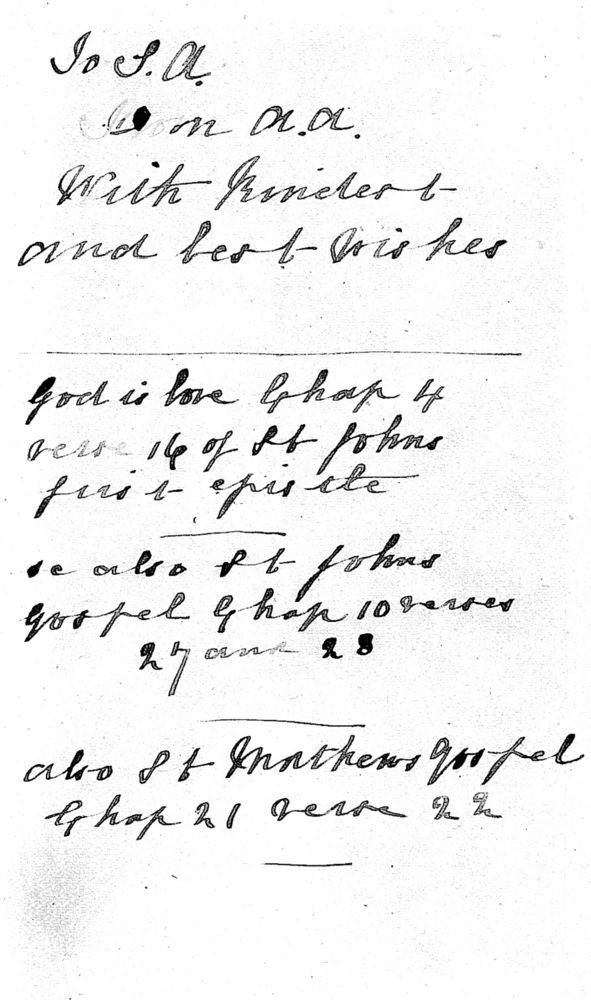 To S. A.
From A. A.
With Kindest
and best wishes
God is love Chap 4
verse 16 of St Johns
first epistle
se also St Johns
Gospel Chap 10 verses
27 and 28
also St Mathews gospel
Chap 21 verse 22